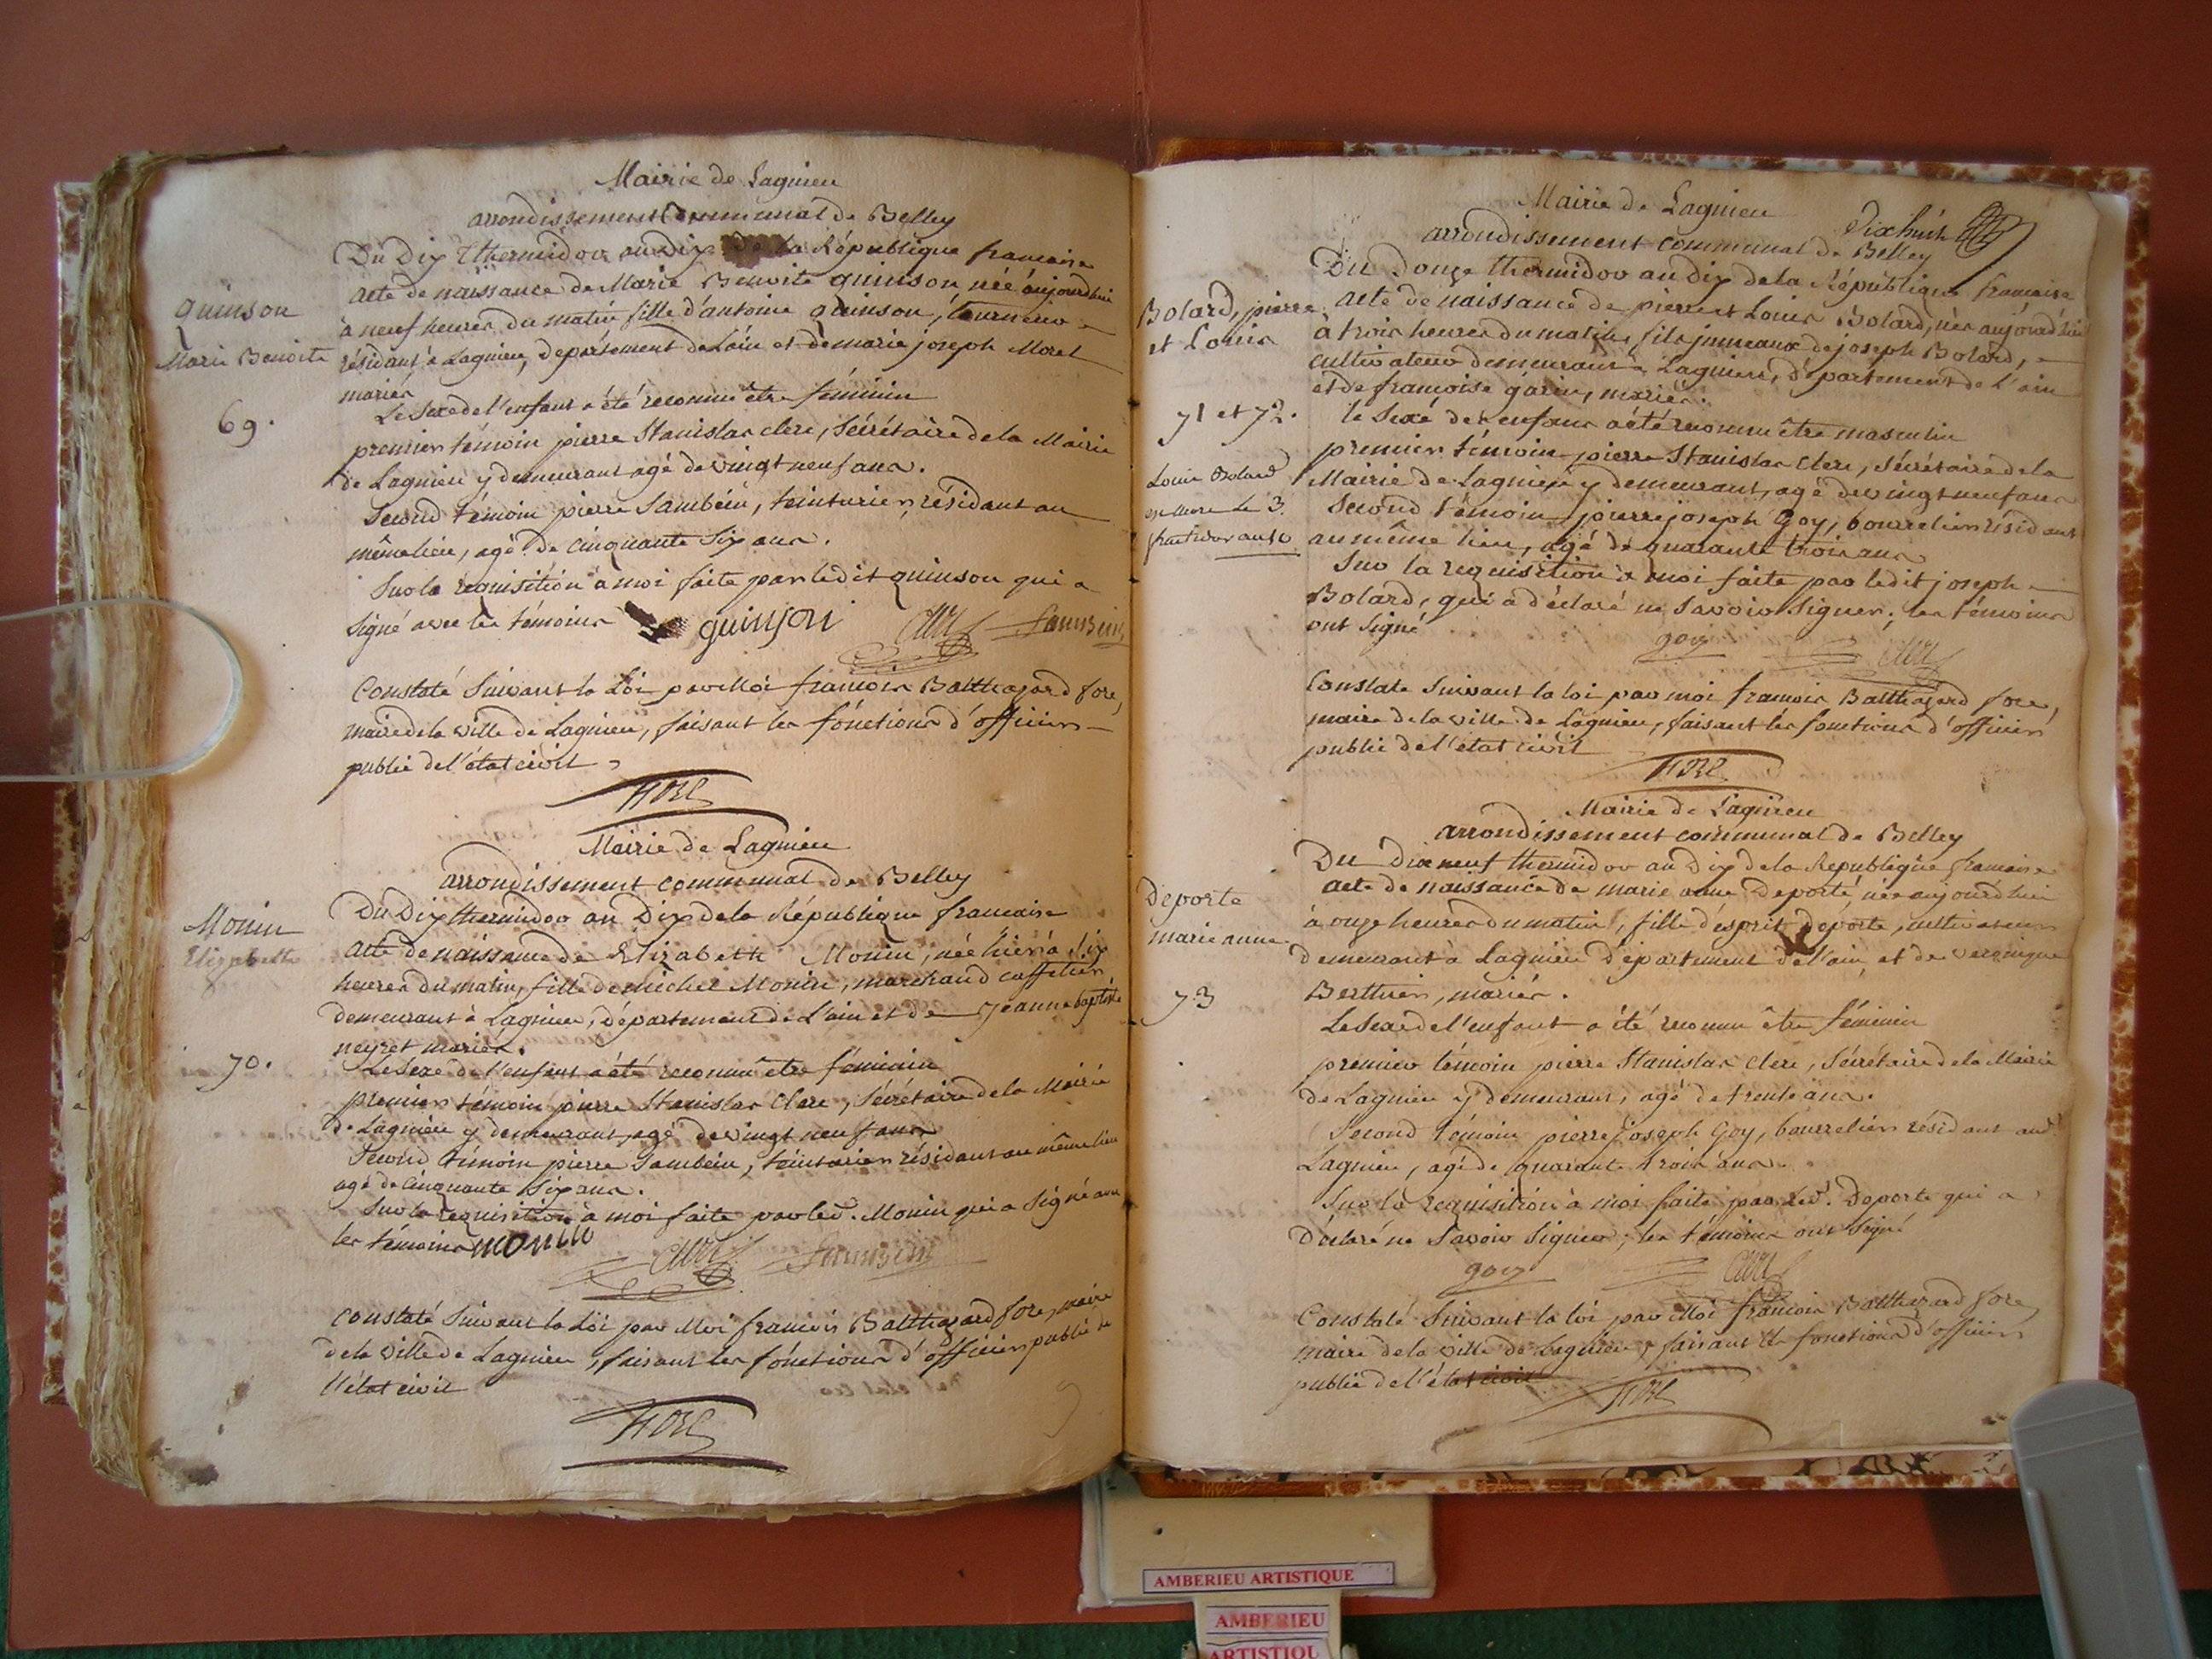 Mairie de Lagnieu
arrondissement Communal de Belley
Du Dix Thermidor an Dix de la République francaise
acte de naissance de Marie Benoite quinson née aujourd'hui
quinson
à neuf heures du matin fille d'antoine quinson, tourneur
Marie Benoite
résidant à Lagnieu, département de L'ain et de marie joseph Morel
mariés
Le Sexe de l'enfant a été reconnu être féminin
69.
premier témoin pierre Stanislas clerc, Sécrétaire de la Mairie
de Lagnieu y demeurant agé de vingt neuf ans.
Second témoin pierre Sambein, teinturier, résidant au
même lieu, agé de cinquante Six ans.
Sur la requisition à moi faite par ledit quinson qui a
Signé avec les témoins quinson Clerc Sambein
Constaté Suivant la Loi par Moi francois Balthazard fore,
maire de la ville de Lagnieu, faisant les fonctions d'officier
public de l'état civil
FORE
Mairie de Lagnieu
arrondissement communal de Belley
Du Dix thermidor an Dix de la République francaise
Monin
Elizabeth
acte de naissance de Elizabeth Monin, née hier à Six
heures du matin, fille de michel Monin, marchand caffetier,
demeurant à Lagnieu, département de L'ain et de Jeanne baptiste
neyret mariés.
70.
Le Sexe de l'enfant a été reconnu être féminin
premier témoin pierre Stanislas Clerc, Sécrétaire de la Mairie
de Lagnieu y demeurant, agé de vingt neuf ans
Second témoin pierre Sambein, teinturier résidant au même lieu
agé de cinquante Six ans.
Sur la requisition à moi faite par led. Monin qui a Signé avec
les témoins monin Clerc Sambein
Constaté Suivant la Loi par Moi francois Balthazard fore, maire
de la ville de Lagnieu, faisant les fonctions d'officier public de
l'état civil
FORE
Mairie de Lagnieu
Dix huit
arrondissement communal de Belley
Du Douze thermidor an dix de la République francaise
Bolard, pierre
et Louis
acte de naissance de pierre et Louis Bolard, nés aujourd'hui
à trois heures du matin, fils jumeaux de joseph Bolard,
cultivateur demeurant à Lagnieu, département de l'ain
et de françoise garin, mariés.
71 et 72.
le Sexe des enfans a été reconnu être masculin
premier témoin pierre Stanislas Clerc, Sécrétaire de la
Louis Bolard
Mairie de Lagnieu y demeurant, agé de vingt neuf ans
est mort le 3.
Second témoin pierre joseph Goy, bourrelier résidant
fructidor an 10
au même lieu, agé de quarante trois ans
Sur la requisition à moi faite par ledit joseph
Bolard, qui a déclaré ne Savoir Signer; les témoins
ont Signé
goy Clerc
Constaté Suivant la loi par moi francois Balthazard fore,
maire de la ville de Lagnieu, faisant les fonctions d'officier
public de l'état civil
FORE
Mairie de Lagnieu
arrondissement communal de Belley
Du Dix neuf thermidor an Dix de la République francaise
Deporte
marie anne
acte de naissance de marie anne Deporte, née aujourd'hui
à onze heures du matin, fille d'esprit Deporte, cultivateur
demeurant à Lagnieu département de l'ain, et de
73
Berthier, mariés.
Le Sexe de l'enfant a été reconnu être féminin
premier témoin pierre Stanislas Clerc, Sécrétaire de la Mairie
de Lagnieu y demeurant, agé de trente ans.
Second témoin pierre joseph Goy, bourrelier résidant aud.
Lagnieu, agé de quarante trois ans.
Sur la requisition à moi faite par led. Deporte qui a
Déclaré ne Savoir Signer; les témoins ont Signé
goy Clerc
Constaté Suivant la loi par Moi francois Balthazard fore,
maire de la ville de Lagnieu, faisant les fonctions d'officier
public de l'état civil
FORE
AMBERIEU ARTISTIQUE
AMBERIEU
ARTISTIQU